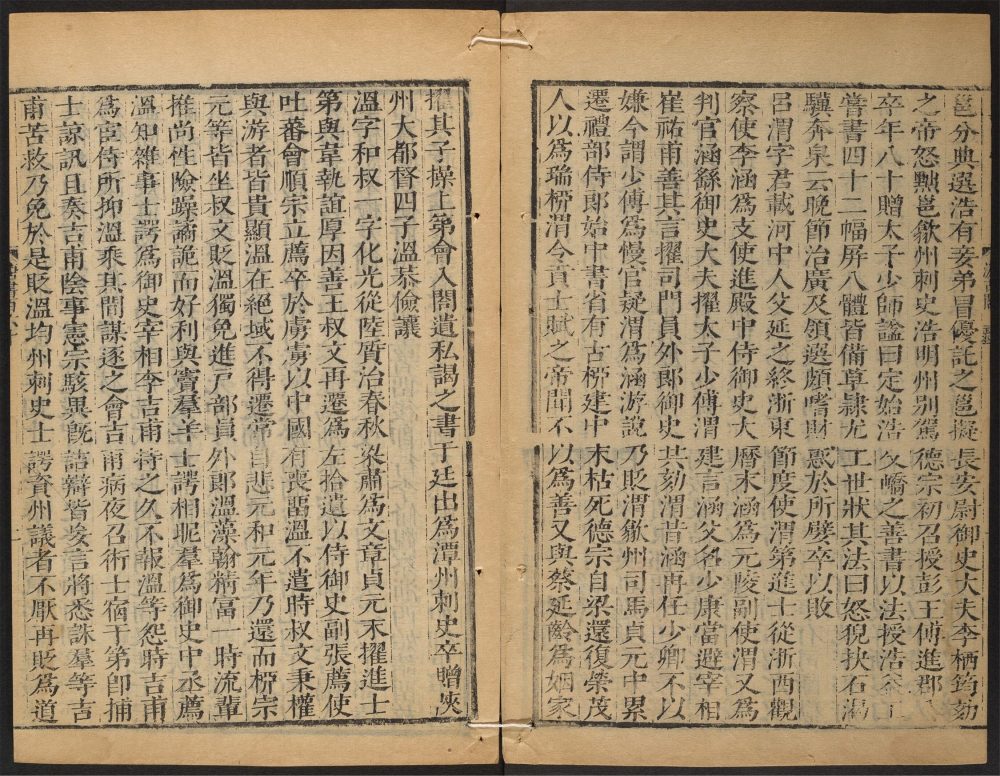 邕分典選浩有妾弟冒優託之邕擬長安尉御史大夫李栖筠劾
之帝怒黜邕歙州刺史浩明州别駕德宗初召授彭王傅進郡
卒年八十贈太子少師謚曰定始浩父嶠之善書以法授浩益工
嘗書四十二幅屏八體皆備草隷尤工世狀其法曰怒猊抉石渴
驥奔泉云晚節治廣及領選頗嗜財惑於所嬖卒以敗
呂渭字君載河中人父延之終浙東節度使渭第進士從浙西觀
察使李涵爲支使進殿中侍御史大曆末涵爲元陵副使渭又爲
判官涵繇御史大夫擢太子少傅渭建言涵父名少康當避宰相
崔祐甫善其言擢司門員外郎御史共劾渭昔涵再任少卿不以
嫌今謂少傅爲慢官疑渭爲涵游說乃貶渭歙州司馬貞元中累
遷禮部侍郎始中書省有古桞建中末枯死德宗自梁還復榮茂
人以爲瑞桞渭令貢士賦之帝聞不以爲善又與蔡延齡爲姻家
擢其子操上第會入閤遺私謁之書于廷出爲潭州刺史卒贈陜
州大都督四子溫恭儉讓
溫字和叔一字化光從陸質治春秋梁肅爲文章貞元末擢進士
第與韋執誼厚因善王叔文再遷爲左拾遺以侍御史副張薦使
吐蕃會順宗立薦卒於虜虜以中國有喪畱溫不遣時叔文秉權
與游者皆貴顯溫在絕域不得遷常自悲元和元年乃還而桞宗
元等皆坐叔文貶溫獨免進戸部員外郎溫藻翰精富一時流輩
推尚性險躁譎詭而好利與竇羣羊士諤相昵羣爲御史中丞薦
溫知雜事士諤爲御史宰相李吉甫持之久不報溫等怨時吉甫
爲宦侍所抑溫乘其間謀逐之會吉甫病夜召術士宿于第卽捕
士諒訊且奏吉甫陰事憲宗駭異旣詰辯皆妄言將悉誅羣等吉
甫苦救乃免於是貶溫均州刺史士諤資州議者不厭再貶爲道